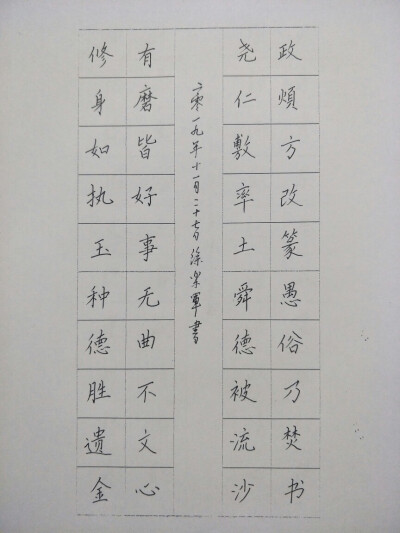 政烦方改篆愚俗乃焚书
尧仁敷率土舜德被流沙
二零一九年十一月二十七日徐荣军书
有磨皆好事无曲不文心
修身如执玉种德胜遗金